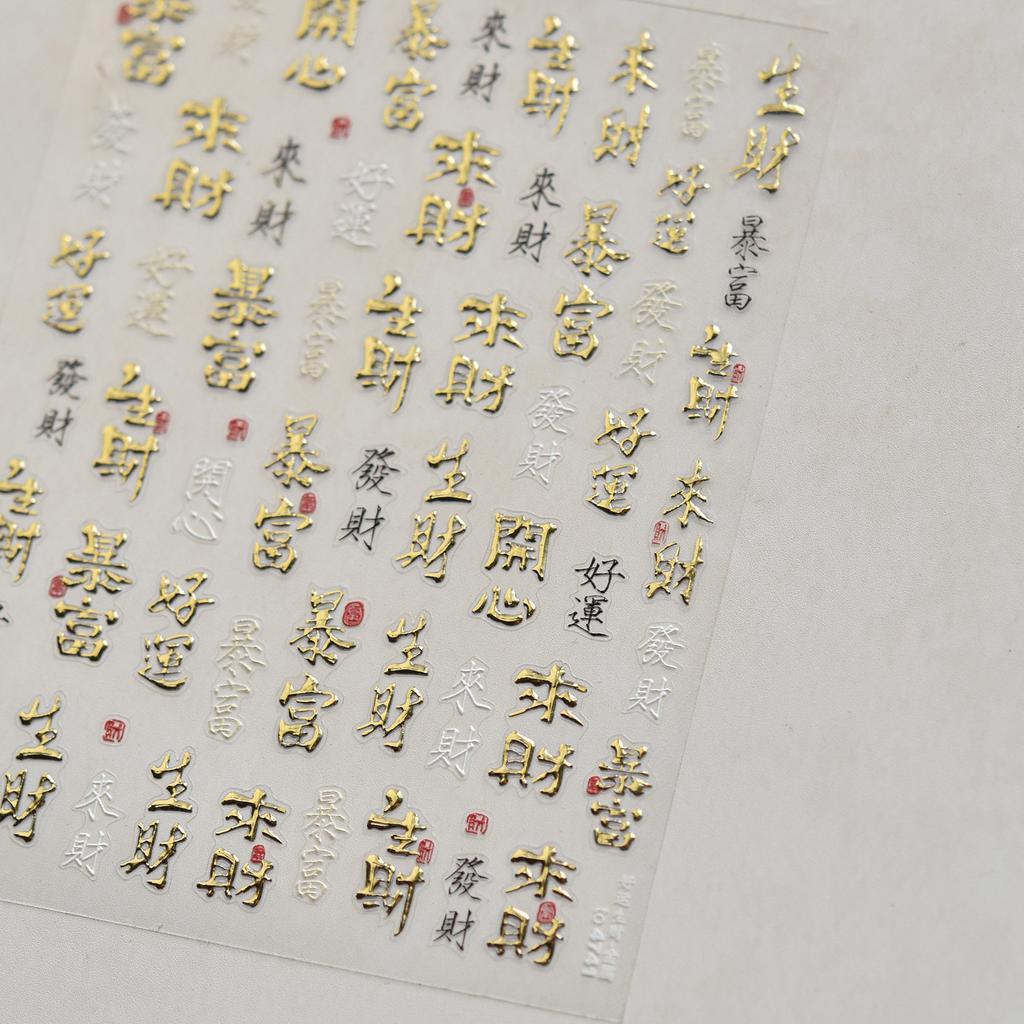 暴富
開心
暴富
來財
生財
來財
暴富
生財
發財
來財
來財
好運
來財
來財
暴富
好運
暴富
好運
好運
暴富
暴富
生財
來財
發財
發財
生財
發財
生財
開心
暴富
發財
生財
開心
好運
好運
來財
生財
暴富
好運
暴富
暴富
生財
來財
來財
發財
暴富
生財
來財
生財
來財
暴富
生財
發財
來財